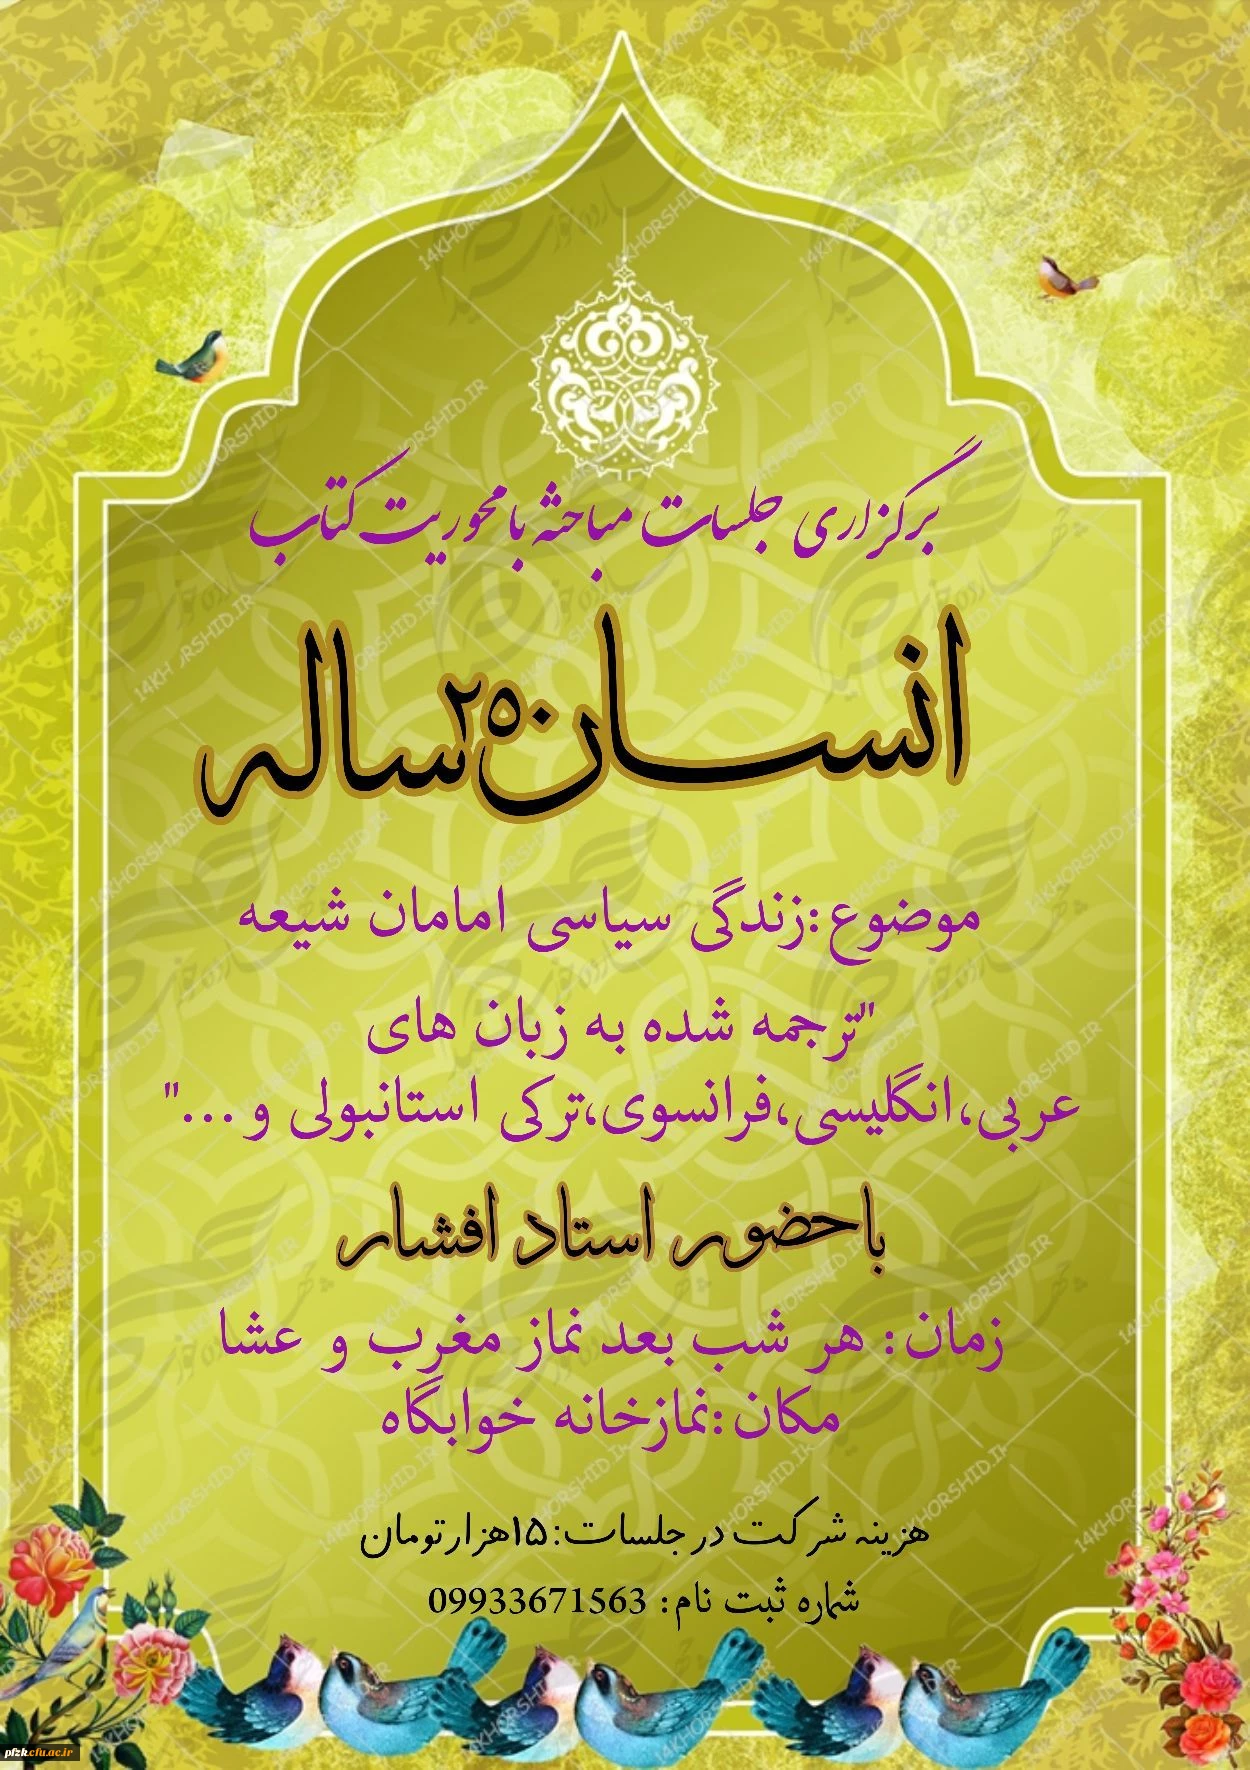 برگزاری جلسات مباحثه با محوریت کتاب
انسان ۲۵۰ ساله
موضوع:زندگی سیاسی امامان شیعه
"ترجمه شده به زبان های
عربی،انگلیسی،فرانسوی،ترکی استانبولی و ..."
با حضور استاد افشار
زمان: هر شب بعد نماز مغرب و عشا
مکان:نمازخانه خوابگاه
هزینه شرکت در جلسات:۱۵هزارتومان
شماره ثبت نام: 09933671563
pfzk.cfu.ac.ir
14KHORSHID.IR